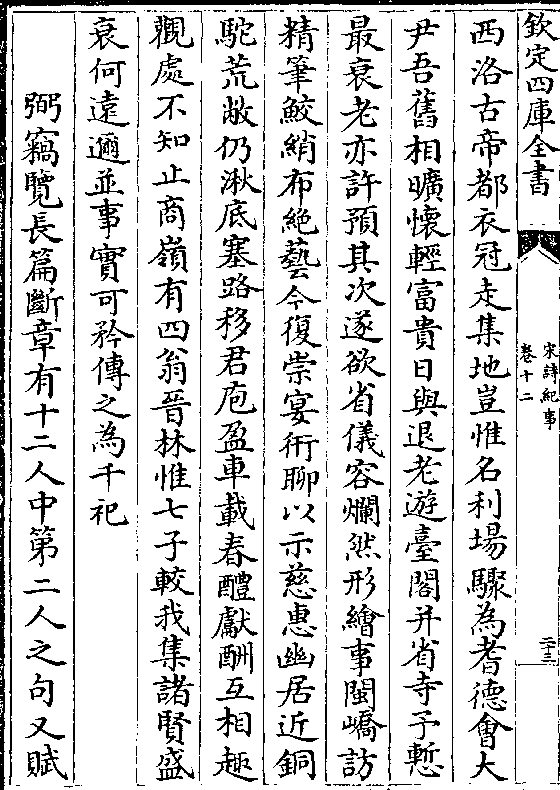 欽定四庫全書
宋詩紀事
卷十二
二十三
西洛古帝都衣冠走集地豈惟名利場驟為耆德會大
尹吾舊相曠懷輕富貴日與退老遊臺閣并省寺予慙
最衰老亦許預其次遂欲省儀容爛然形繪事閩嶠訪
精筆鮫綃布絶藝今復崇宴術聊以示慈惠幽居近銅
駝荒敞仍湫底塞路移君庖盈車載春醴獻酬互相趣
觀處不知止商嶺有四翁晉林惟七子較我集諸賢盛
衰何遠邇並事實可矜傳之為千祀
弼竊覽長篇斷章有十二人中第二人之句又賦